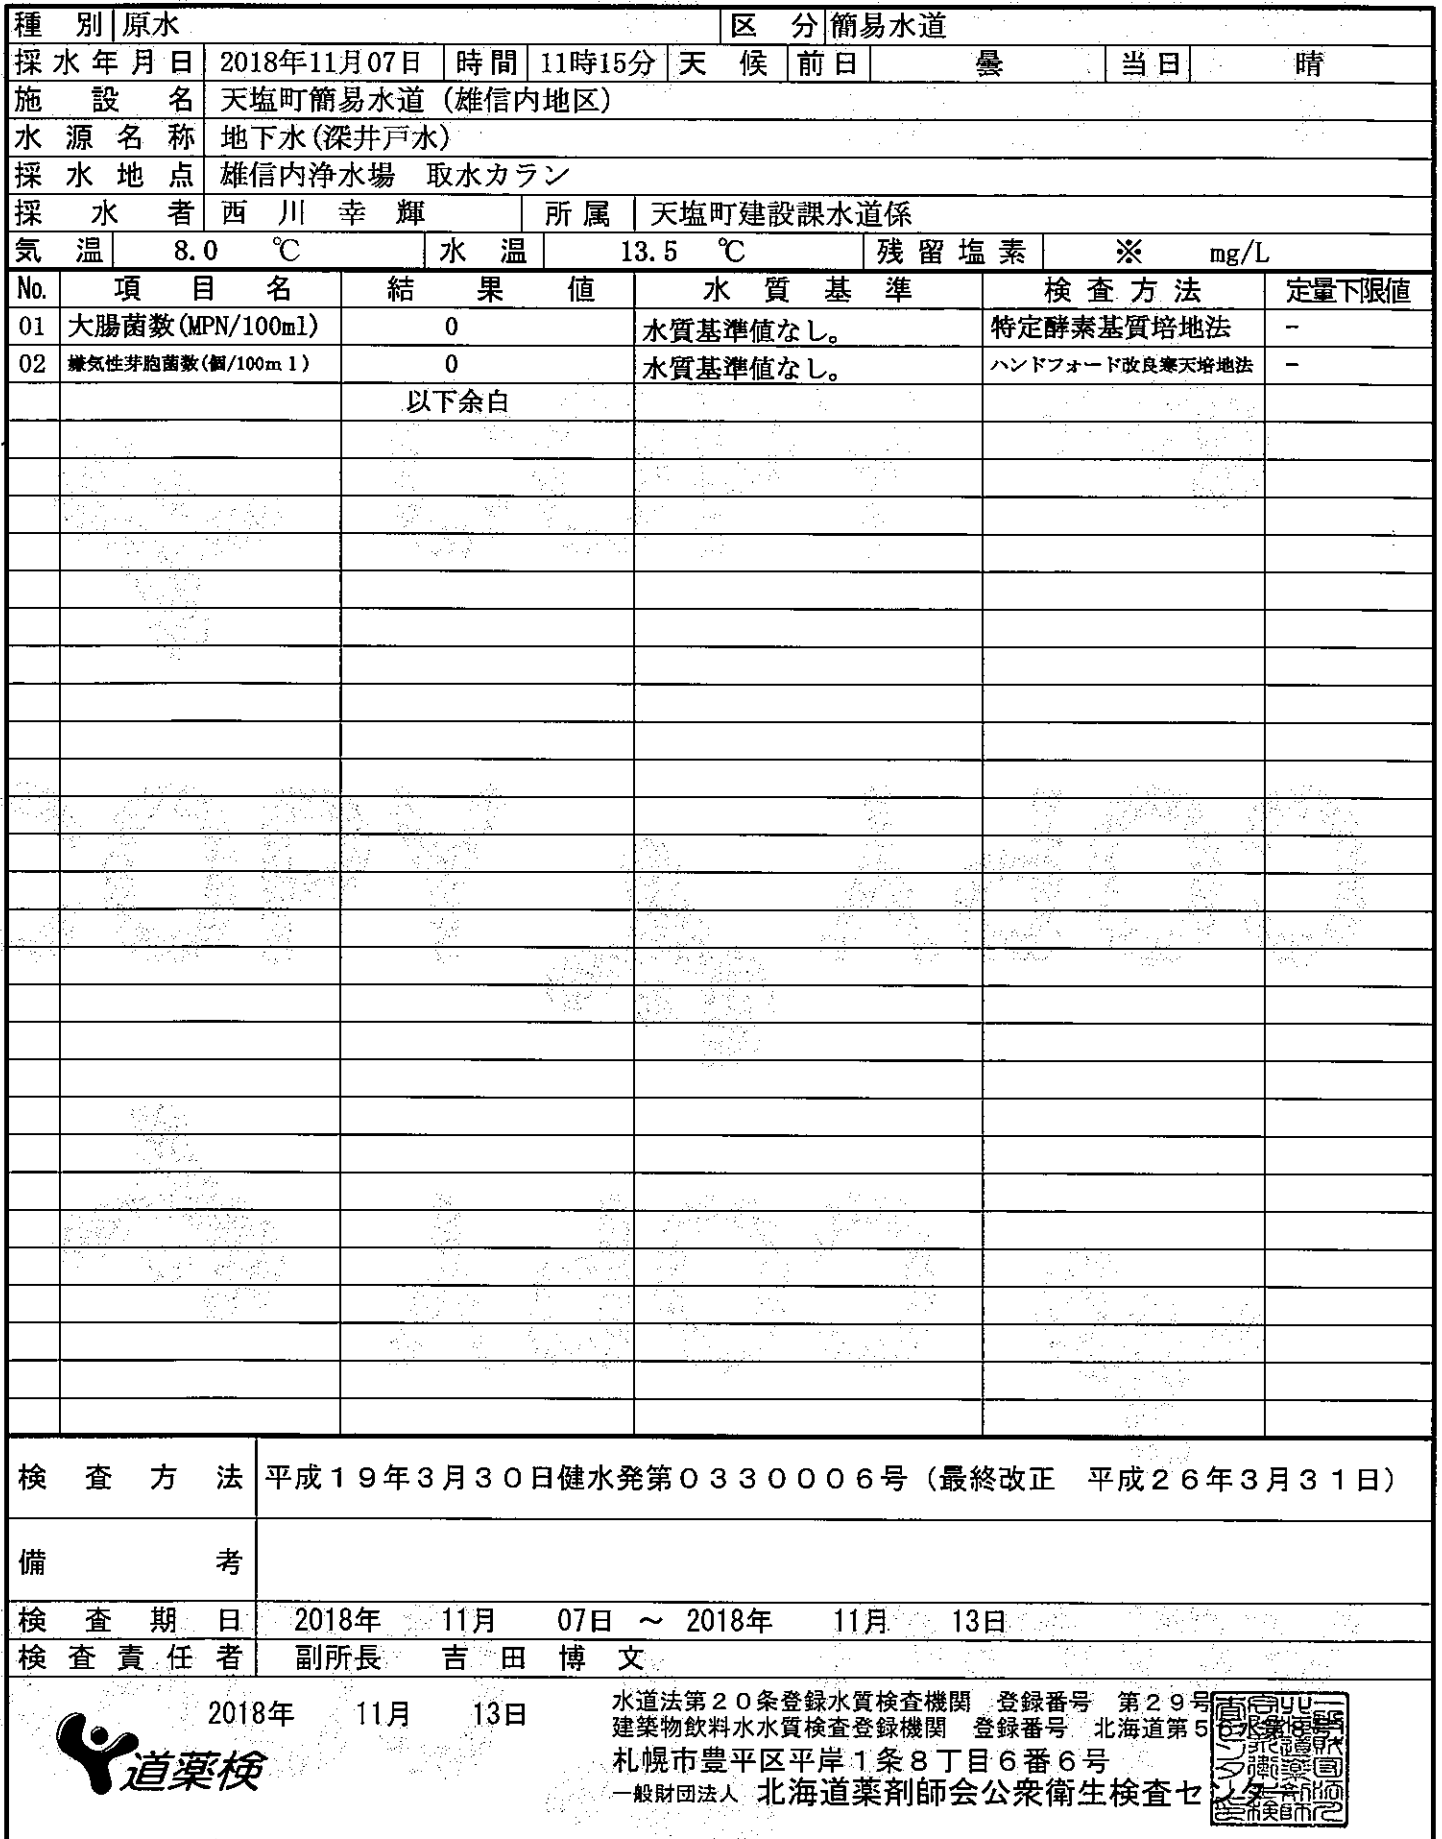 種別 原水 区分 簡易水道
採水年月日 2018年11月07日 時間 11時15分 天候 前日 曇 当日 晴
施設名 天塩町簡易水道（雄信内地区）
水源名称 地下水(深井戸水)
採水地点 雄信内浄水場 取水カラン
採水者 西川幸輝 所属 天塩町建設課水道係
気温 8.0 ℃ 水温 13.5 ℃ 残留塩素 ※ mg/L
No. 項目名 結果値 水質基準 検査方法 定量下限値
01 大腸菌数(MPN/100ml) 0 水質基準値なし。 特定酵素基質培地法 －
02 嫌気性芽胞菌数(個/100ml) 0 水質基準値なし。 ハンドフォード改良寒天培地法 －
以下余白
検査方法 平成１９年３月３０日健水発第０３３０００６号（最終改正 平成２６年３月３１日）
備考
検査期日 2018年 11月 07日 ～ 2018年 11月 13日
検査責任者 副所長 吉田博文
2018年 11月 13日
水道法第２０条登録水質検査機関 登録番号 第２９号
建築物飲料水水質検査登録機関 登録番号 北海道第５６水第8号
札幌市豊平区平岸１条８丁目６番６号
一般財団法人 北海道薬剤師会公衆衛生検査センター
道薬検